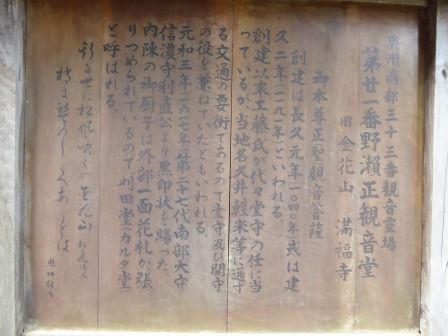 奥州南部三十三番観音霊場
第廿一番野瀬正観音堂
旧金花山 満福寺
御本尊正聖観音菩薩
創建は長久元年(一〇四〇年)或は建
久二年(一一九一年)といわれる。
創建以来工藤氏が代々堂守の任に当
っているが、当地名久井、軽米等に通ず
る交通の要衝であるので堂守及び関守
の役を兼ねていたともいわれる。
元和三年(一六一七年)第二十七代南部大守
信濃守利直公より黒印状を賜った。
内陣の御厨子は外部一面花札が張
りつめられているので刈田堂(カルタ堂)
と呼ばれる。
松風
金花山